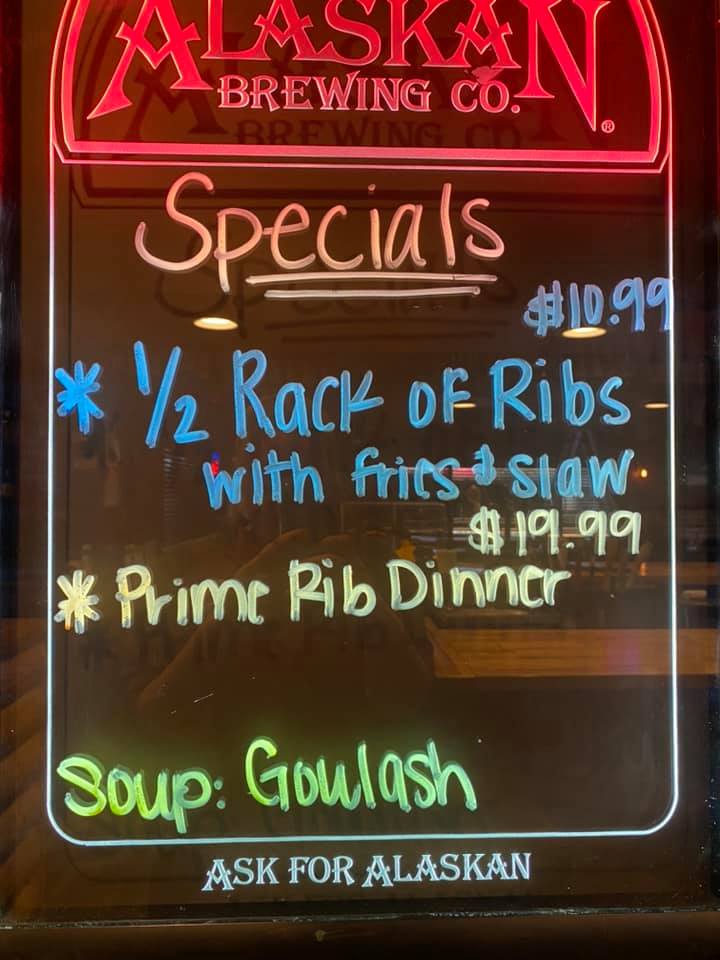 ALASKAN
BREWING CO.®
Specials
$10.99
* 1/2 Rack of Ribs
with fries & slaw
$19.99
* Prime Rib Dinner
Soup: Goulash
ASK FOR ALASKAN